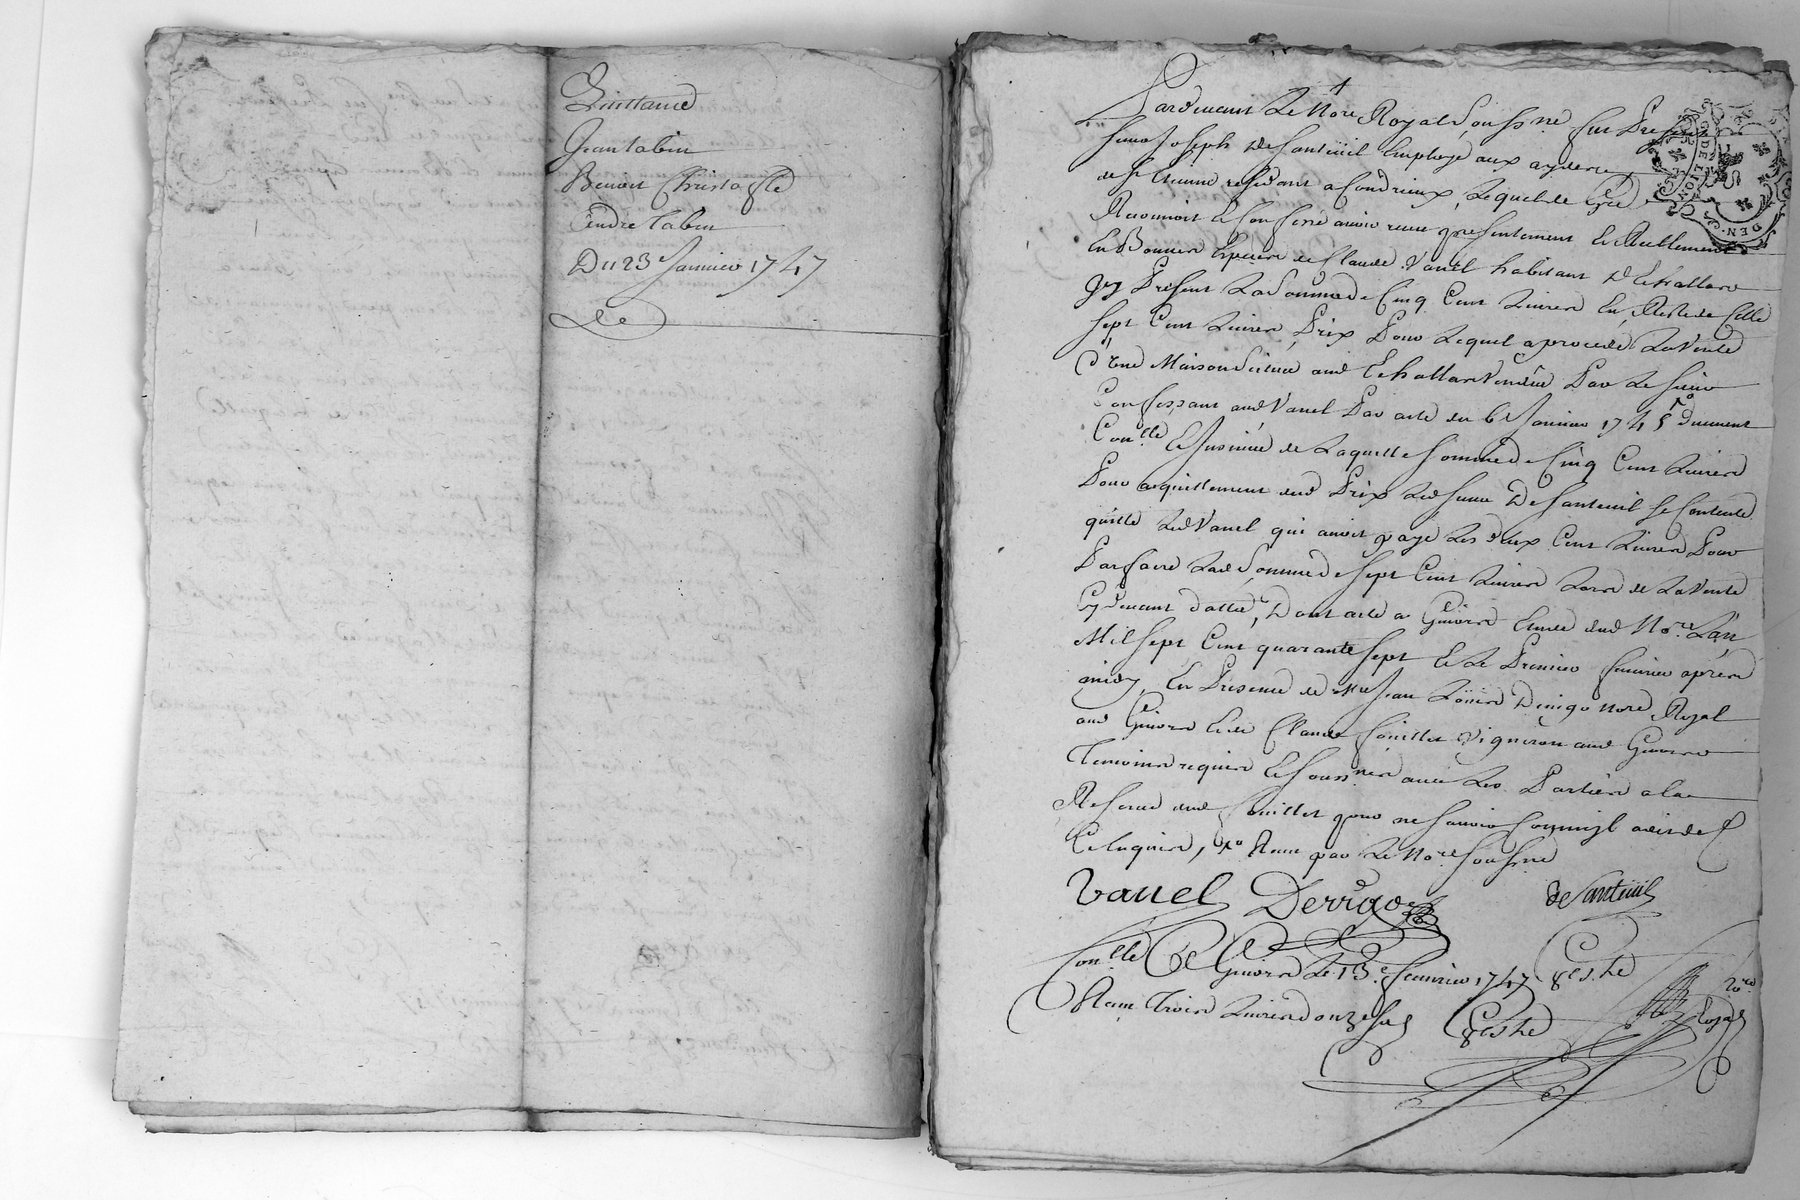 Quittance
Jean tabin
Benoit Christofle
Andre tabin
Du 23e Janvier 1747
Pardevant Le No.re Royal Souss.né fut Present
Sieur Joseph De Santeüil Employé aux aydes
de St Etienne residant a Condrieux, Lequel de gré
Reconnoit & Confesse avoir receu presentement & Reellement
En Bonnes Especes de Claude Vanel habitant D'Echallas
Icy Present La Somme de Cinq Cent Livres En Reste de Celle
sept Cent Livres, Prix Pour Lequel a procedé La Vente
d'une Maison Située aud Echallas Vendüe Par Le sieur
Confessant aud Vanel Par acte du 6e Janvier 1745 duement
Con.llé & Insinué de Laquelle Somme de Cinq Cent Livres
Pour acquittement dud Prix Led sieur De Santeuil se Contente
quitte Led Vanel qui avoit payé Les deux Cent Livres Pour
Parfaire Lad Somme de sept Cent Livres Lors de La Vente
Cy devant dattée, Dont acte a Givors Etude dud No.re L'an
Mil sept Cent quarante sept & Le Premier fevrier apres
midy, En Presence de Me Jean Loüis Derigo Nore Royal
aud Givors & de Claude foüillet Vigneron aud Givors
Temoins requis & Souss.nés avec Les Parties a la
Reserve dud foüillet pour ne sçavoir
& Enquis, Reçu par Le No.re Soussné
Vanel Derrigo deSanteüil
Con.llé a Givors Le 13e fevrier 1747
Recu Trois Livres douze sols
Nore Royal
DEN. G. DE LION